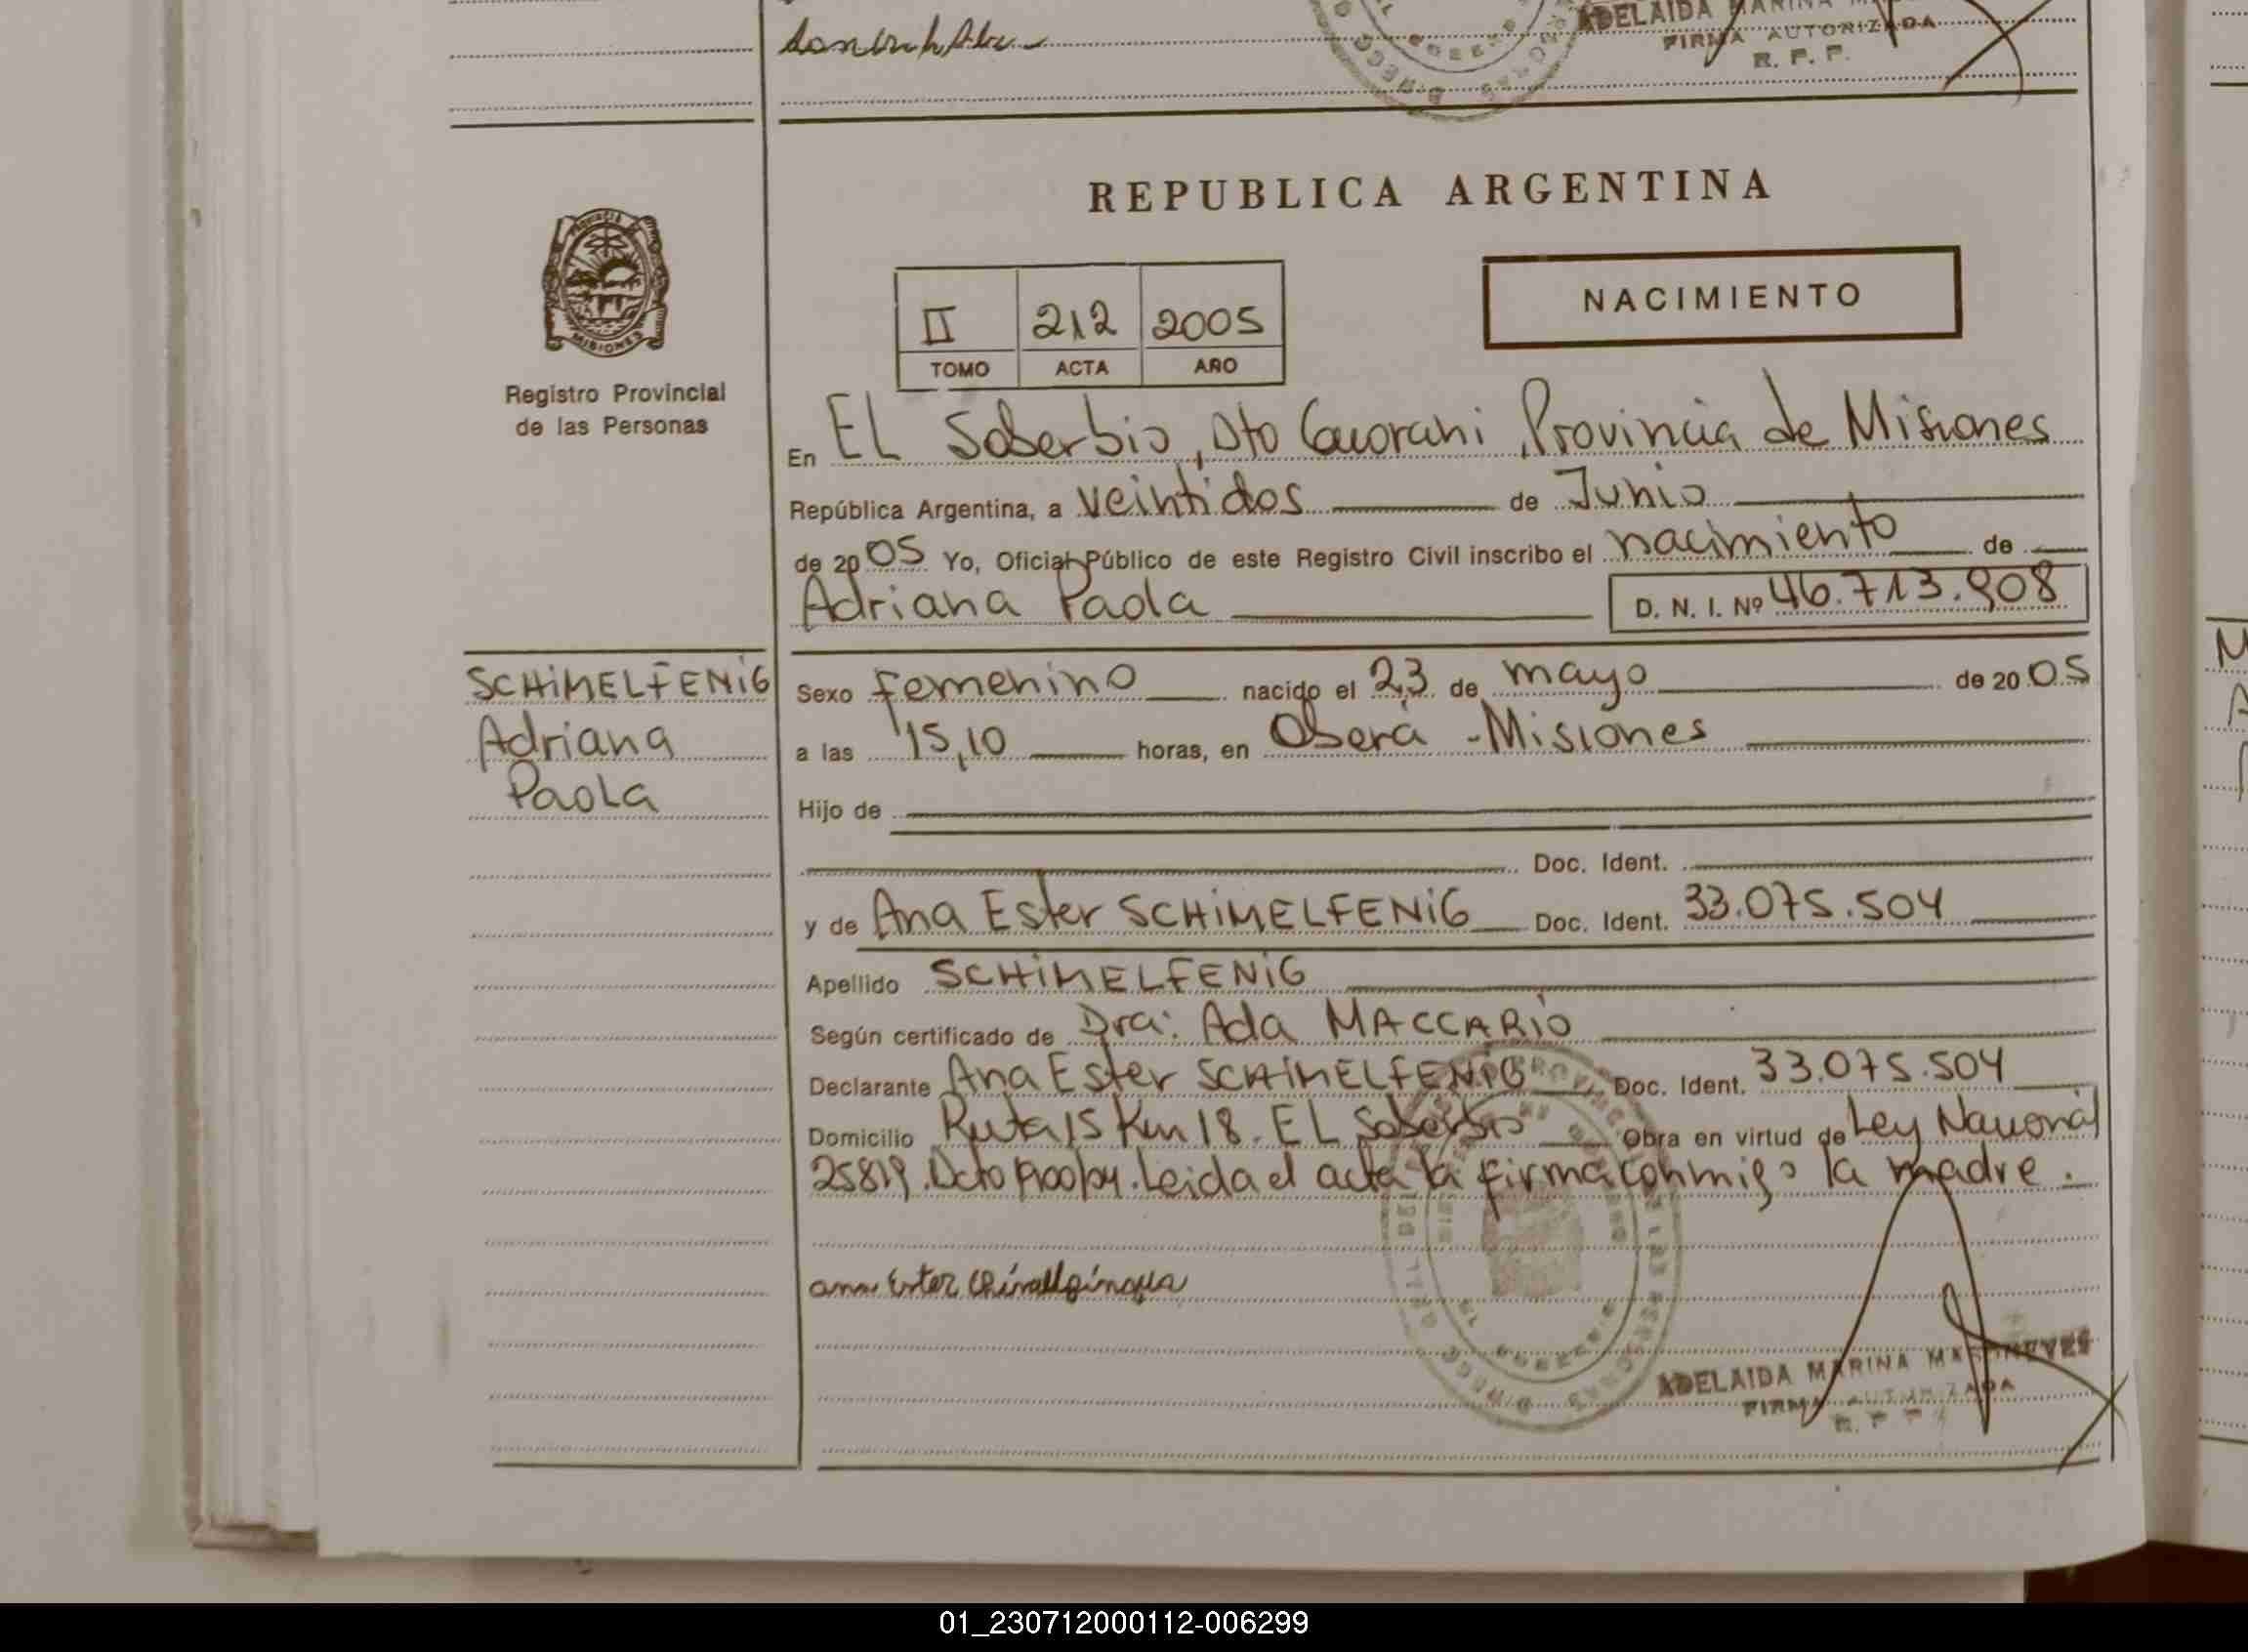 ADELAIDA MARINA
FIRMA AUTORIZADA
R. P. P.
REPUBLICA ARGENTINA
PROVINCIA DE
MISIONES
Registro Provincial
de las Personas
NACIMIENTO
II 212 2005
TOMO ACTA AÑO
En EL Soberbio, Dto Guarani, Provincia de Misiones
República Argentina, a veintidos de Junio
de 2005 Yo, Oficial Público de este Registro Civil inscribo el nacimiento de
Adriana Paola D. N. I. Nº 46.713.908
SCHIMELFENIG
Adriana
Paola
Sexo femenino nacido el 23 de mayo de 2005
a las 15,10 horas, en Oberá - Misiones
Hijo de
Doc. Ident.
y de Ana Ester SCHIMELFENIG Doc. Ident. 33.075.504
Apellido SCHIMELFENIG
Según certificado de Dra: Ada MACCARIO
Declarante Ana Ester SCHIMELFENIG Doc. Ident. 33.075.504
Domicilio Ruta 15 Km 18. EL Soberbio Obra en virtud de Ley Nacional
25819. Dcto Leida el acta la firma conmigo la madre.
ana Ester
ADELAIDA MARINA
FIRMA AUTORIZADA
R. P. P.
01_230712000112-006299